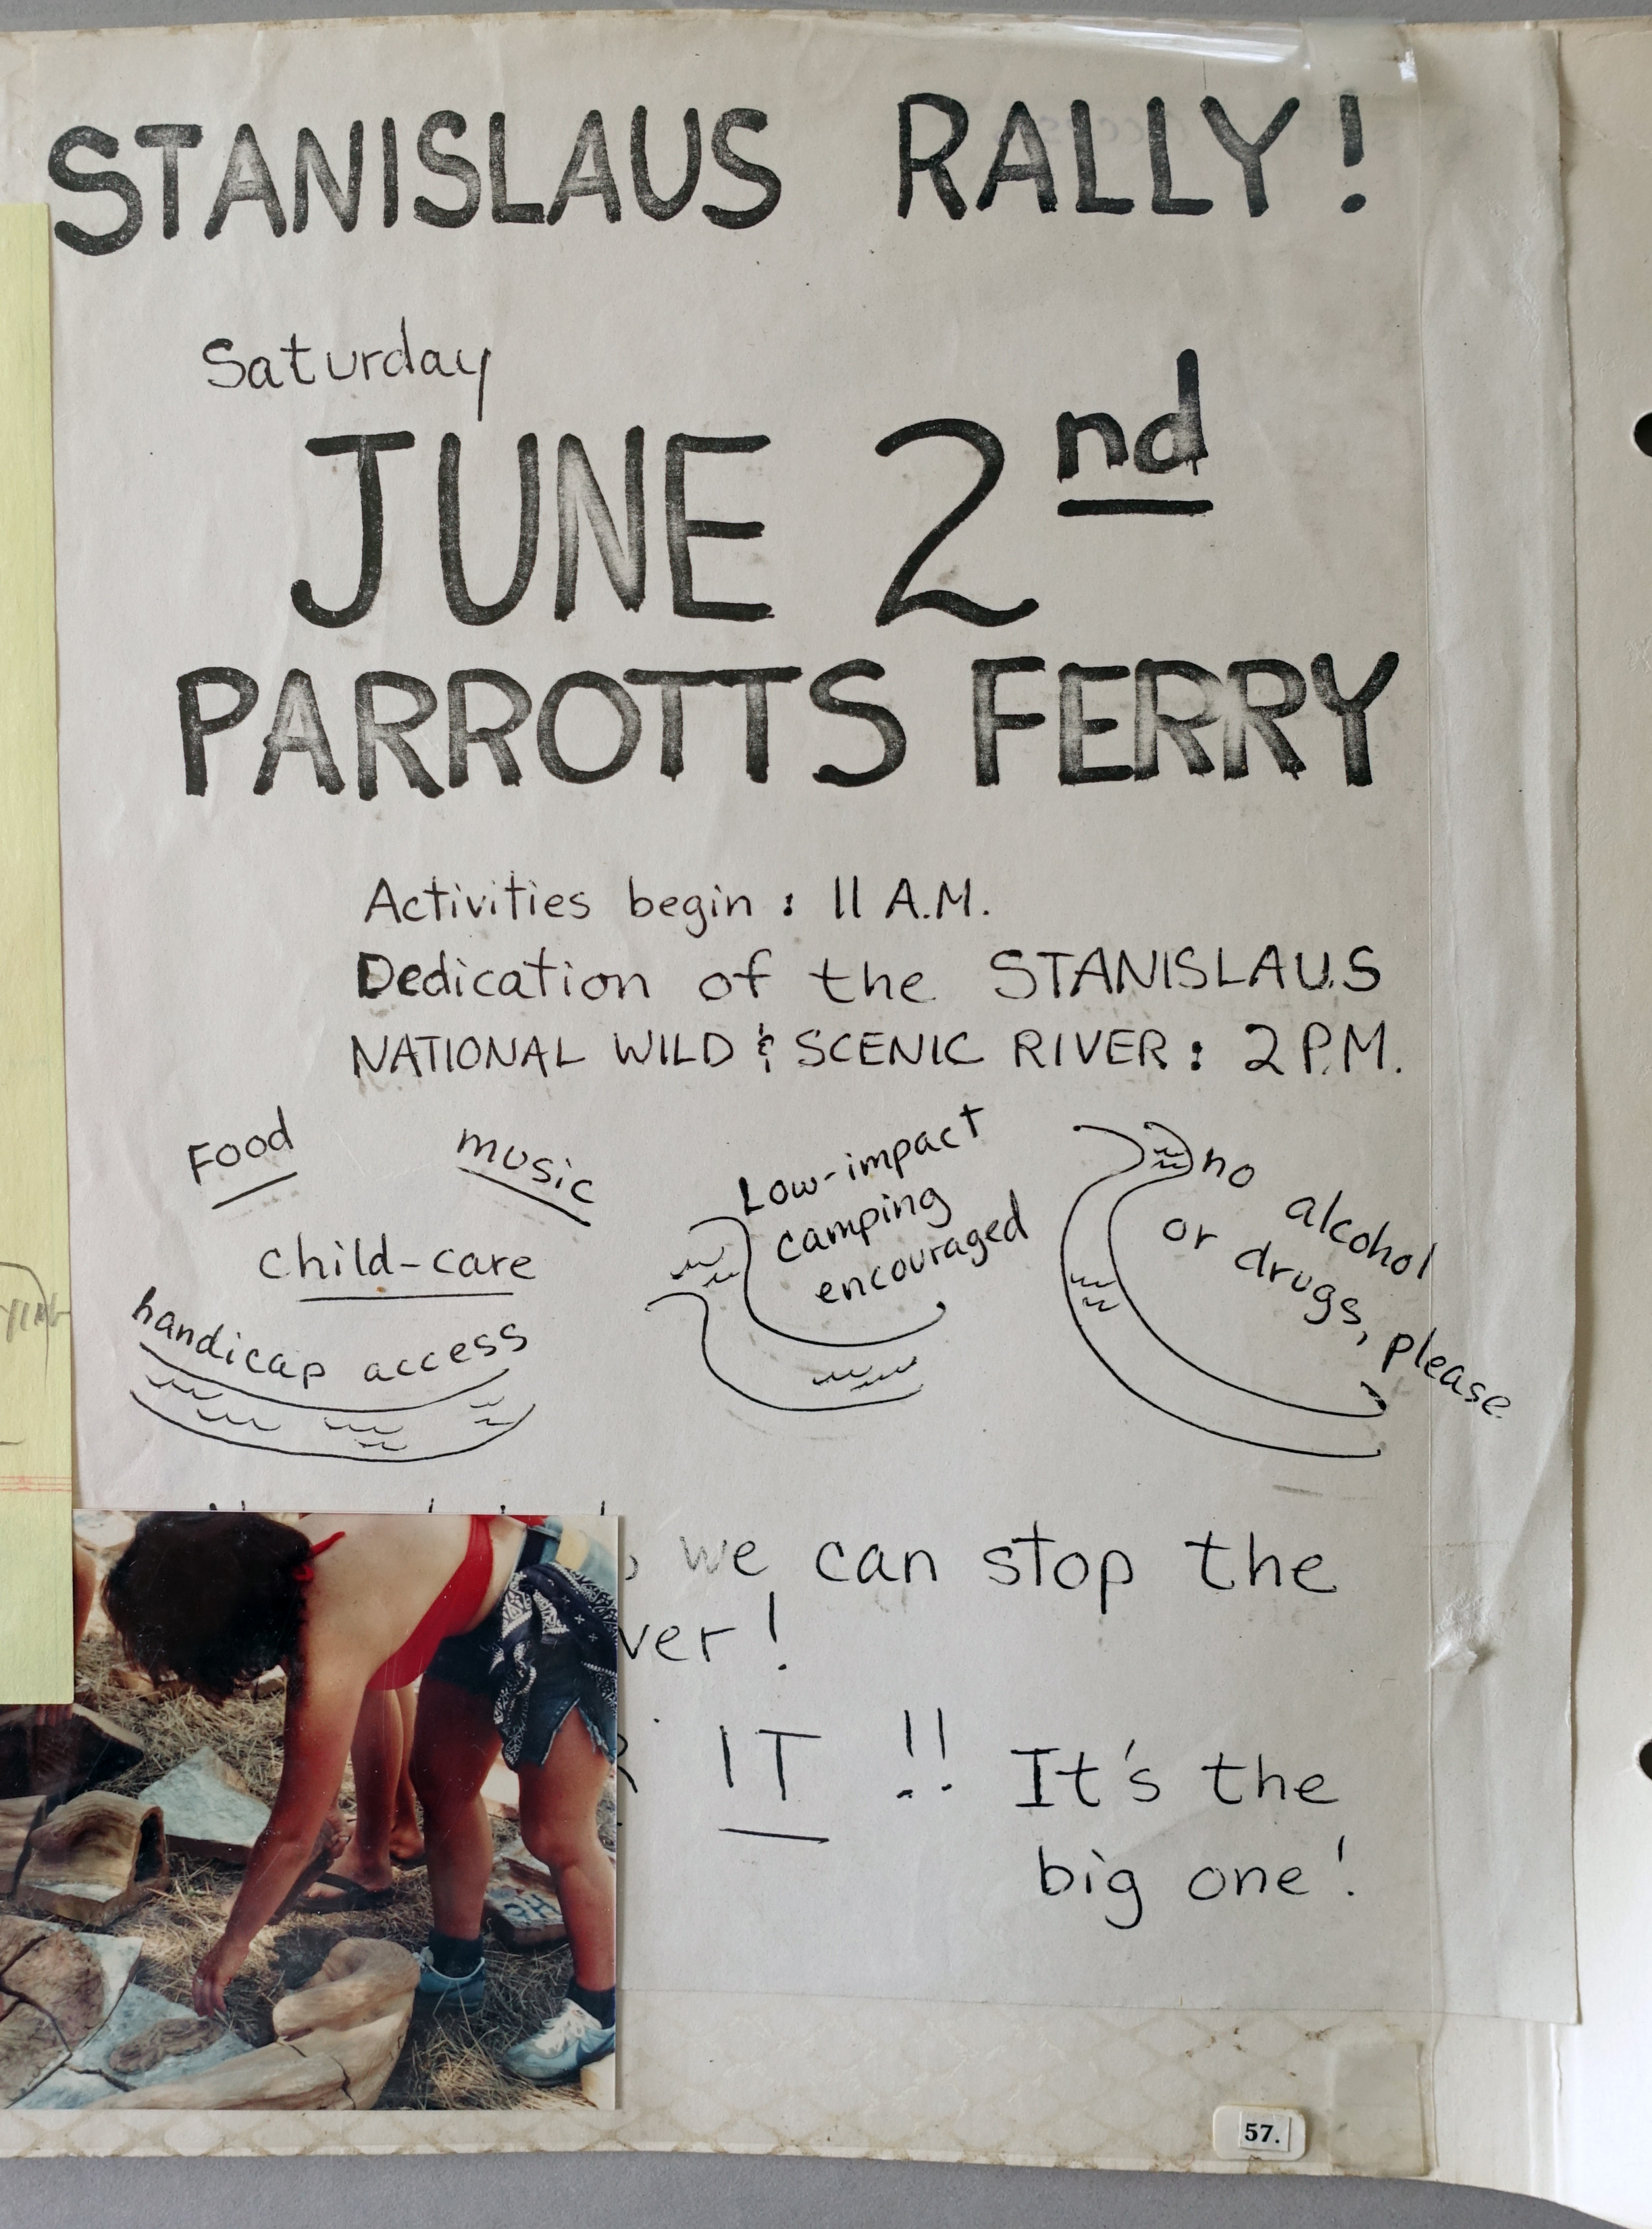 STANISLAUS RALLY!
Saturday
JUNE 2nd
PARROTTS FERRY
Activities begin: 11 A.M.
Dedication of the STANISLAUS
NATIONAL WILD & SCENIC RIVER: 2 P.M.
Food
music
child-care
handicap access
Low-impact
camping
encouraged
no alcohol
or drugs, please
we can stop the
ver!
IT !! It's the
big one!
57.